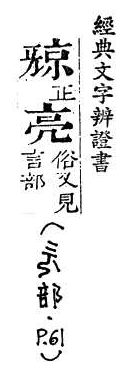 經典文字辨證書
正
亮
俗又見
言部
部·P.61)